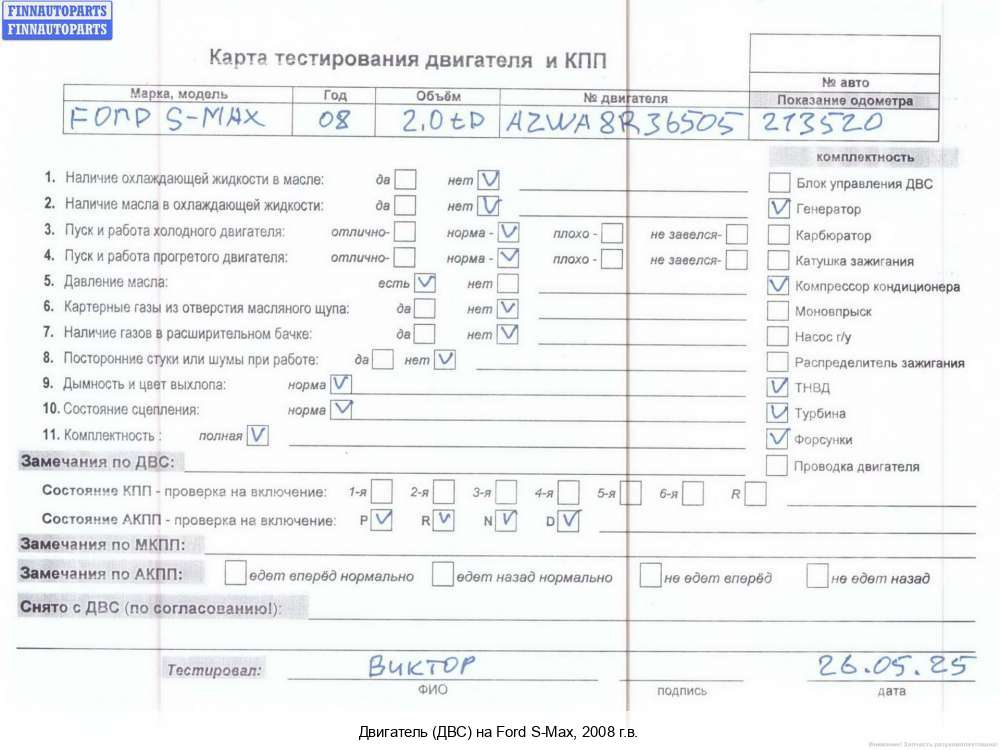 FINNAUTOPARTS
FINNAUTOPARTS
Карта тестирования двигателя и КПП
№ авто
Марка, модель Год Объём № двигателя Показание одометра
FORD S-MAX 08 2.0td AZWA8R36505 213520
комплектность
1. Наличие охлаждающей жидкости в масле: да нет
Блок управления ДВС
2. Наличие масла в охлаждающей жидкости: да нет
Генератор
3. Пуск и работа холодного двигателя: отлично- норма - плохо - не завелся-
Карбюратор
4. Пуск и работа прогретого двигателя: отлично- норма - плохо - не завелся-
Катушка зажигания
5. Давление масла: есть нет
Компрессор кондиционера
6. Картерные газы из отверстия масляного щупа: да нет
Моновпрыск
7. Наличие газов в расширительном бачке: да нет
Насос г/у
8. Посторонние стуки или шумы при работе: да нет
Распределитель зажигания
9. Дымность и цвет выхлопа: норма
ТНВД
10. Состояние сцепления: норма
Турбина
11. Комплектность : полная
Форсунки
Замечания по ДВС:
Проводка двигателя
Состояние КПП - проверка на включение: 1-я 2-я 3-я 4-я 5-я 6-я R
Состояние АКПП - проверка на включение: P R N D
Замечания по МКПП:
Замечания по АКПП: едет вперёд нормально едет назад нормально не едет вперёд не едет назад
Снято с ДВС (по согласованию!):
Тестировал: ВИКТОР 26.05.25
ФИО подпись дата
Двигатель (ДВС) на Ford S-Max, 2008 г.в.
Внимание! Запчасть разукомплектована!